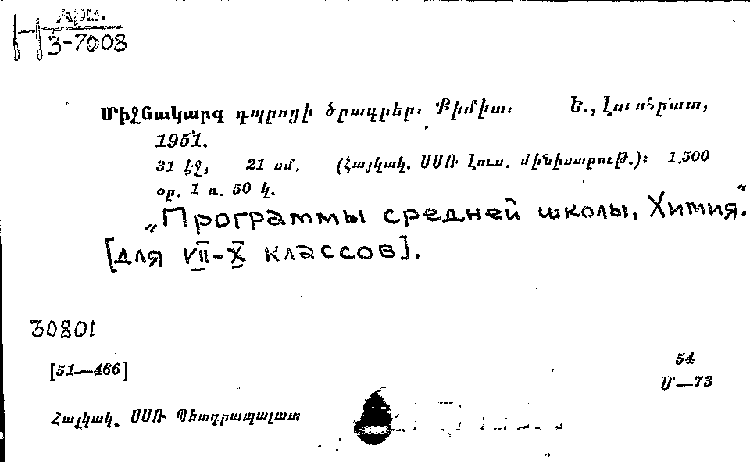 Арм.
3-7008
Միջնակարգ դպրոցի ծրագրեր։ Քիմիա։ Ե., Լուսհրատ,
1951.
31 էջ, 21 սմ. (Հայկակ. ՍՍՌ Լուս. մինիստրութ.)։ 1,500
օր. 1 ռ. 50 կ.
„Программы средней школы, Химия."
[для VII-X классов].
30801
[51—466] 54
Մ—73
Հայկակ. ՍՍՌ Պետգրապալատ